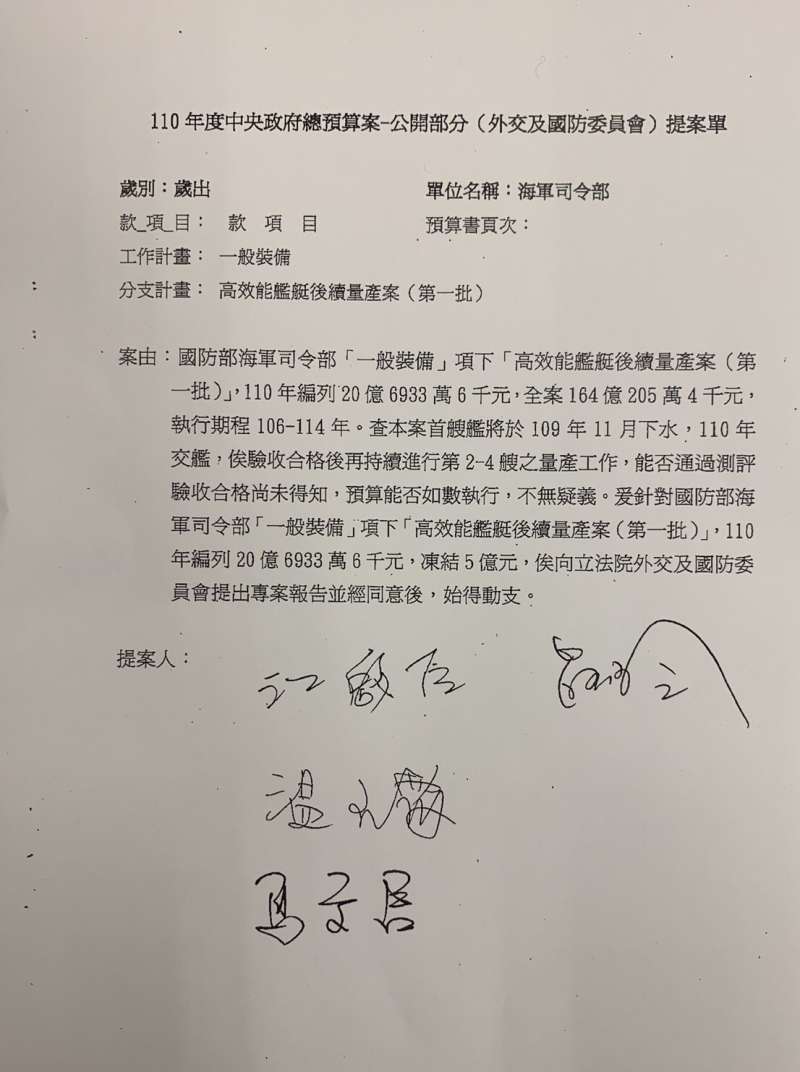 110年度中央政府總預算案-公開部分（外交及國防委員會）提案單
歲別：歲出 單位名稱：海軍司令部
款_項_目： 款 項 目 預算書頁次：
工作計畫： 一般裝備
分支計畫： 高效能艦艇後續量產案（第一批）
案由：國防部海軍司令部「一般裝備」項下「高效能艦艇後續量產案（第
一批）」，110年編列20億6933萬6千元，全案164億205萬4千元，
執行期程106-114年。查本案首艘艦將於109年11月下水，110年
交艦，俟驗收合格後再持續進行第2-4艘之量產工作，能否通過測評
驗收合格尚未得知，預算能否如數執行，不無疑義。爰針對國防部海
軍司令部「一般裝備」項下「高效能艦艇後續量產案（第一批）」，110
年編列20億6933萬6千元，凍結5億元，俟向立法院外交及國防委
員會提出專案報告並經同意後，始得動支。
提案人：
江啟臣
溫
馬文君